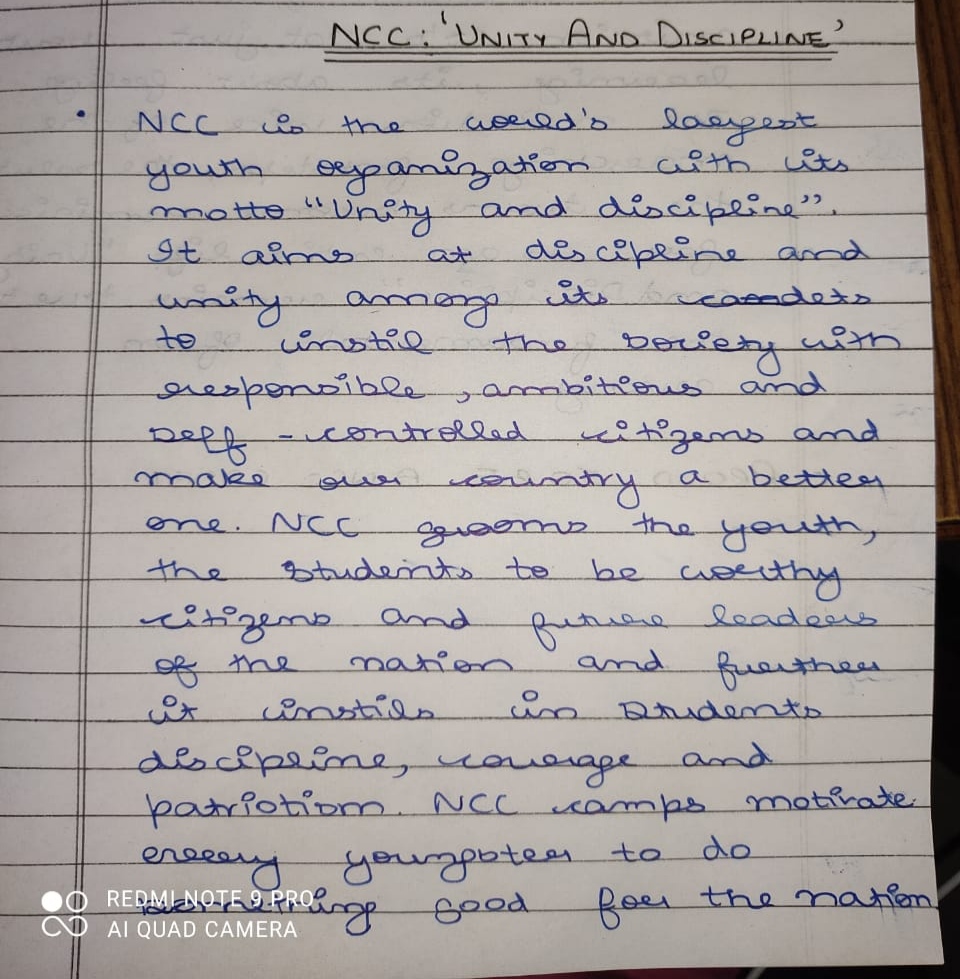 NCC: 'UNITY AND DISCIPLINE'
• NCC is the world's largest
youth organization with its
motto "Unity and discipline".
It aims at discipline and
unity among its caadets
to instil the society with
responsible, ambitious and
self-controlled citizens and
make our country a better
one. NCC grooms the youth,
the students to be worthy
citizens and future leaders
of the nation and further
it instils in students
discipline, courage and
patriotism. NCC camps motivate
every youngster to do
something good for the nation
REDMI NOTE 9 PRO
AI QUAD CAMERA